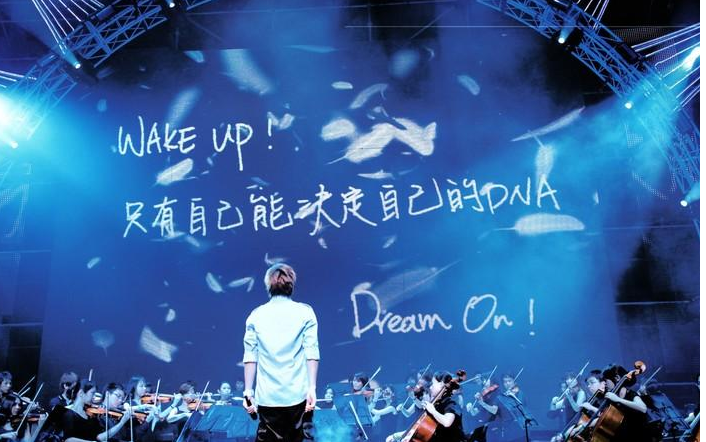 WAKE UP!
只有自己能决定自己的DNA
Dream On!